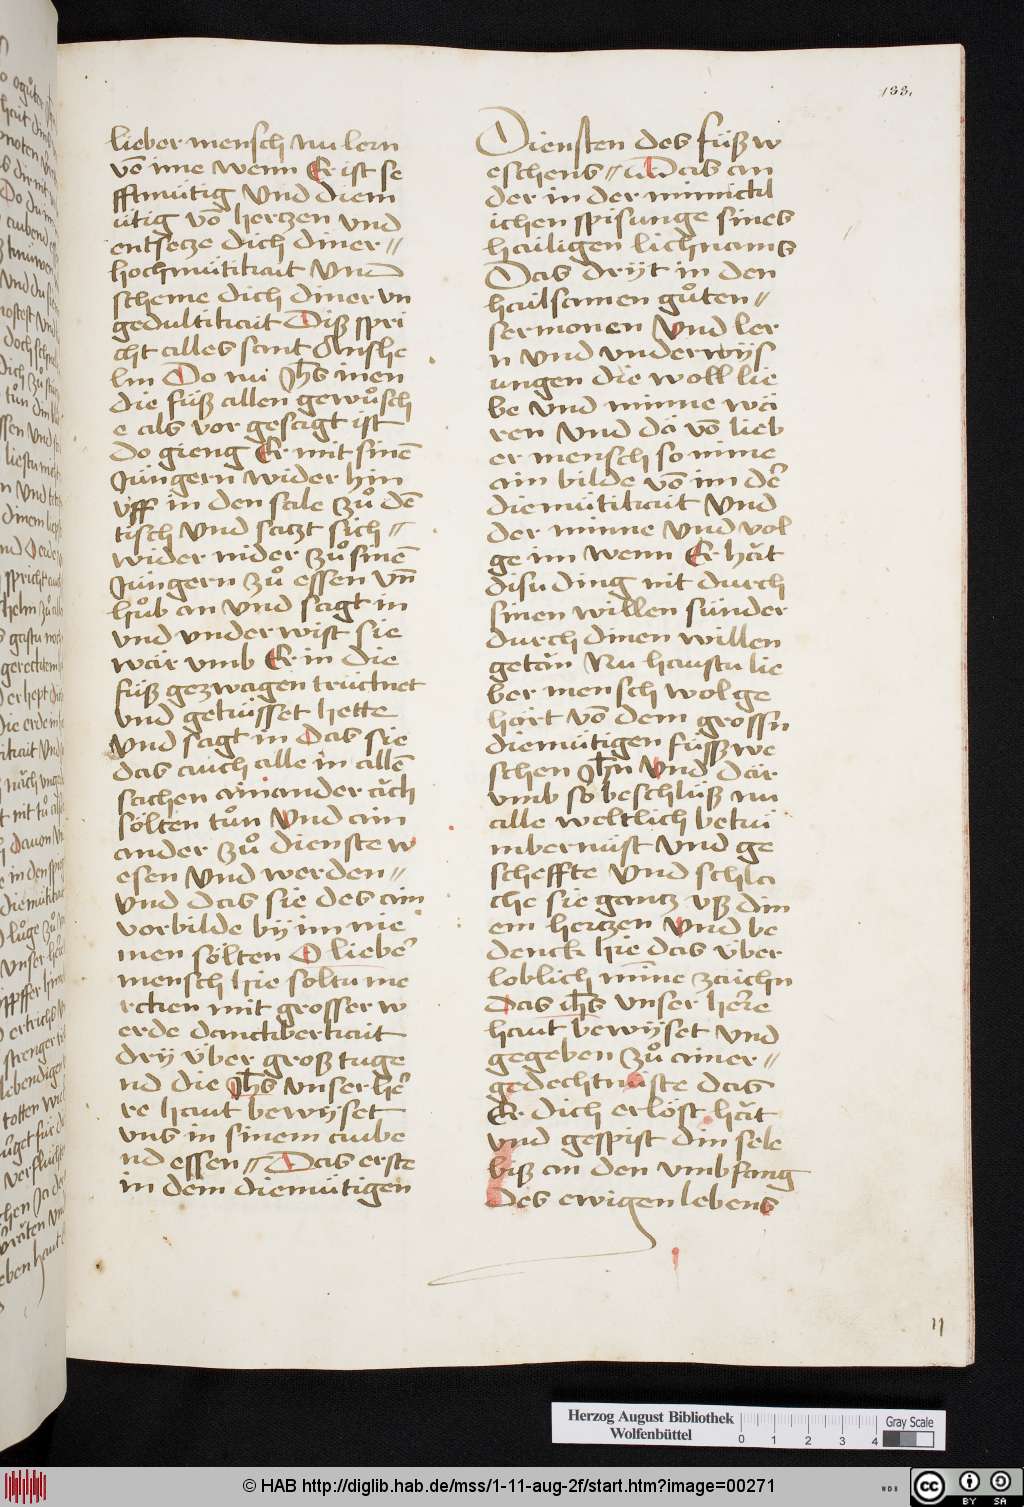 133.
lieber mensch Nu lern
võ ime wenn Er ist se
fftmütig Vnd diem
ütig võ hertzen vnd
entsecze dich diner〃
hochmütikait Vnd
scheme dich diner vn
gedultikait Diß spri
cht alles sant Anshe
lm Do nu Jhs inen
die füß allen gewůsch
e als vor gesagt ist
do gieng Er mit sinē
Jüngern wider hin
vff in den sale zů dē
tisch Vnd saczt sich〃
wider nider zů sinē
Jüngern zů essen vn̄
hůb an vnd sagt in
vnd vnder wist sie
wär vmb Er in die
füß gezwagen trücknet
vnd geküsset hette
Vnd sagt in Das sie
das auch alle in allē
sachen ainander äch
sölten tůn Vnd ain
ander zů dienste w
esen Vnd werden〃
vnd das sie des ain
vorbilde by im nie
men sölten O lieber
mensch hie soltu me
rcken mit grosser w
erde danckberkait
dry über groß tuge
nd die Jhs vnser her
re haut bewyset
vns in sinem aube
nd essen〃 Das erste
in dem diemütigen
Diensten des füß w
eschens〃 Das an
der in der minickl
ichen spisunge sines
hailigen lichnams
Das dryt in den
hailsamen gůten〃
sermonen Vnd ler
n vnd vnderwys
ungen die woll lie
be vnd minne wä
ren Vnd dä võ lieb
er mensch so nime
ain bilde võ im der
diemütikait Vnd
der minne Vnd vol
ge im wenn Er hät
disu ding nit durch
sinen willen sünder
durch dinen willen
getän Nu haustu lie
ber mensch wol ge
hört võ dem grossn
diemütigen füssz we
schen Jhn Vnd där
vmb so beschlüß nu
alle weltlich bekü
mbernüst Vnd ge
scheffte Vnd schla
che sie gantz vß dim
em hertzen Vnd be
denck hie das über
loblich mīne zaichn
Das ihs vnser herre
haut bewyset vnd
gegeben zů ainer〃
gedechtnüste das
Er dich erlöst hät
vnd gespist din sele
biß an den vmbfang
Des ewigen lebens
11
Herzog August Bibliothek
Wolfenbüttel
0 1 2 3 4
Gray Scale
© HAB http://diglib.hab.de/mss/1-11-aug-2f/start.htm?image=00271
WDB
cc BY SA